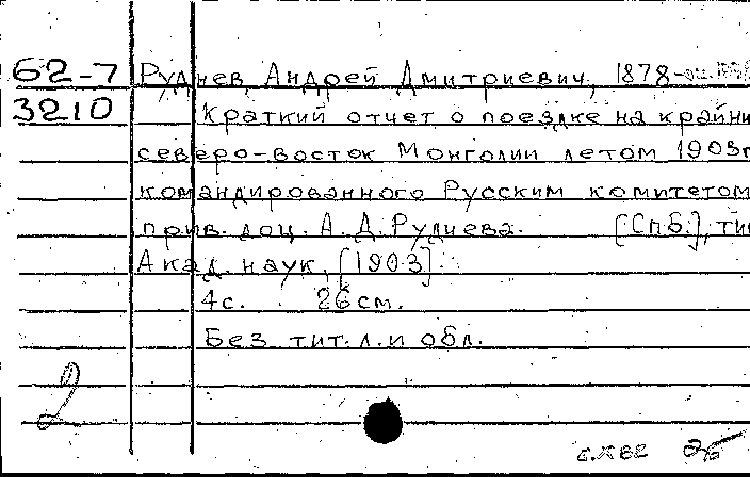 62-7 Руднев, Андрей Дмитриевич, 1878-
3210 Краткий отчет о поездке на крайни
северо-восток Монголии летом 1903г
командированного Русским комитетом
прив. доц. А. Д. Руднева. [Спб.], тип
Акад. наук, [1903].
4с. 26см.
Без тит. л. и обл.
2